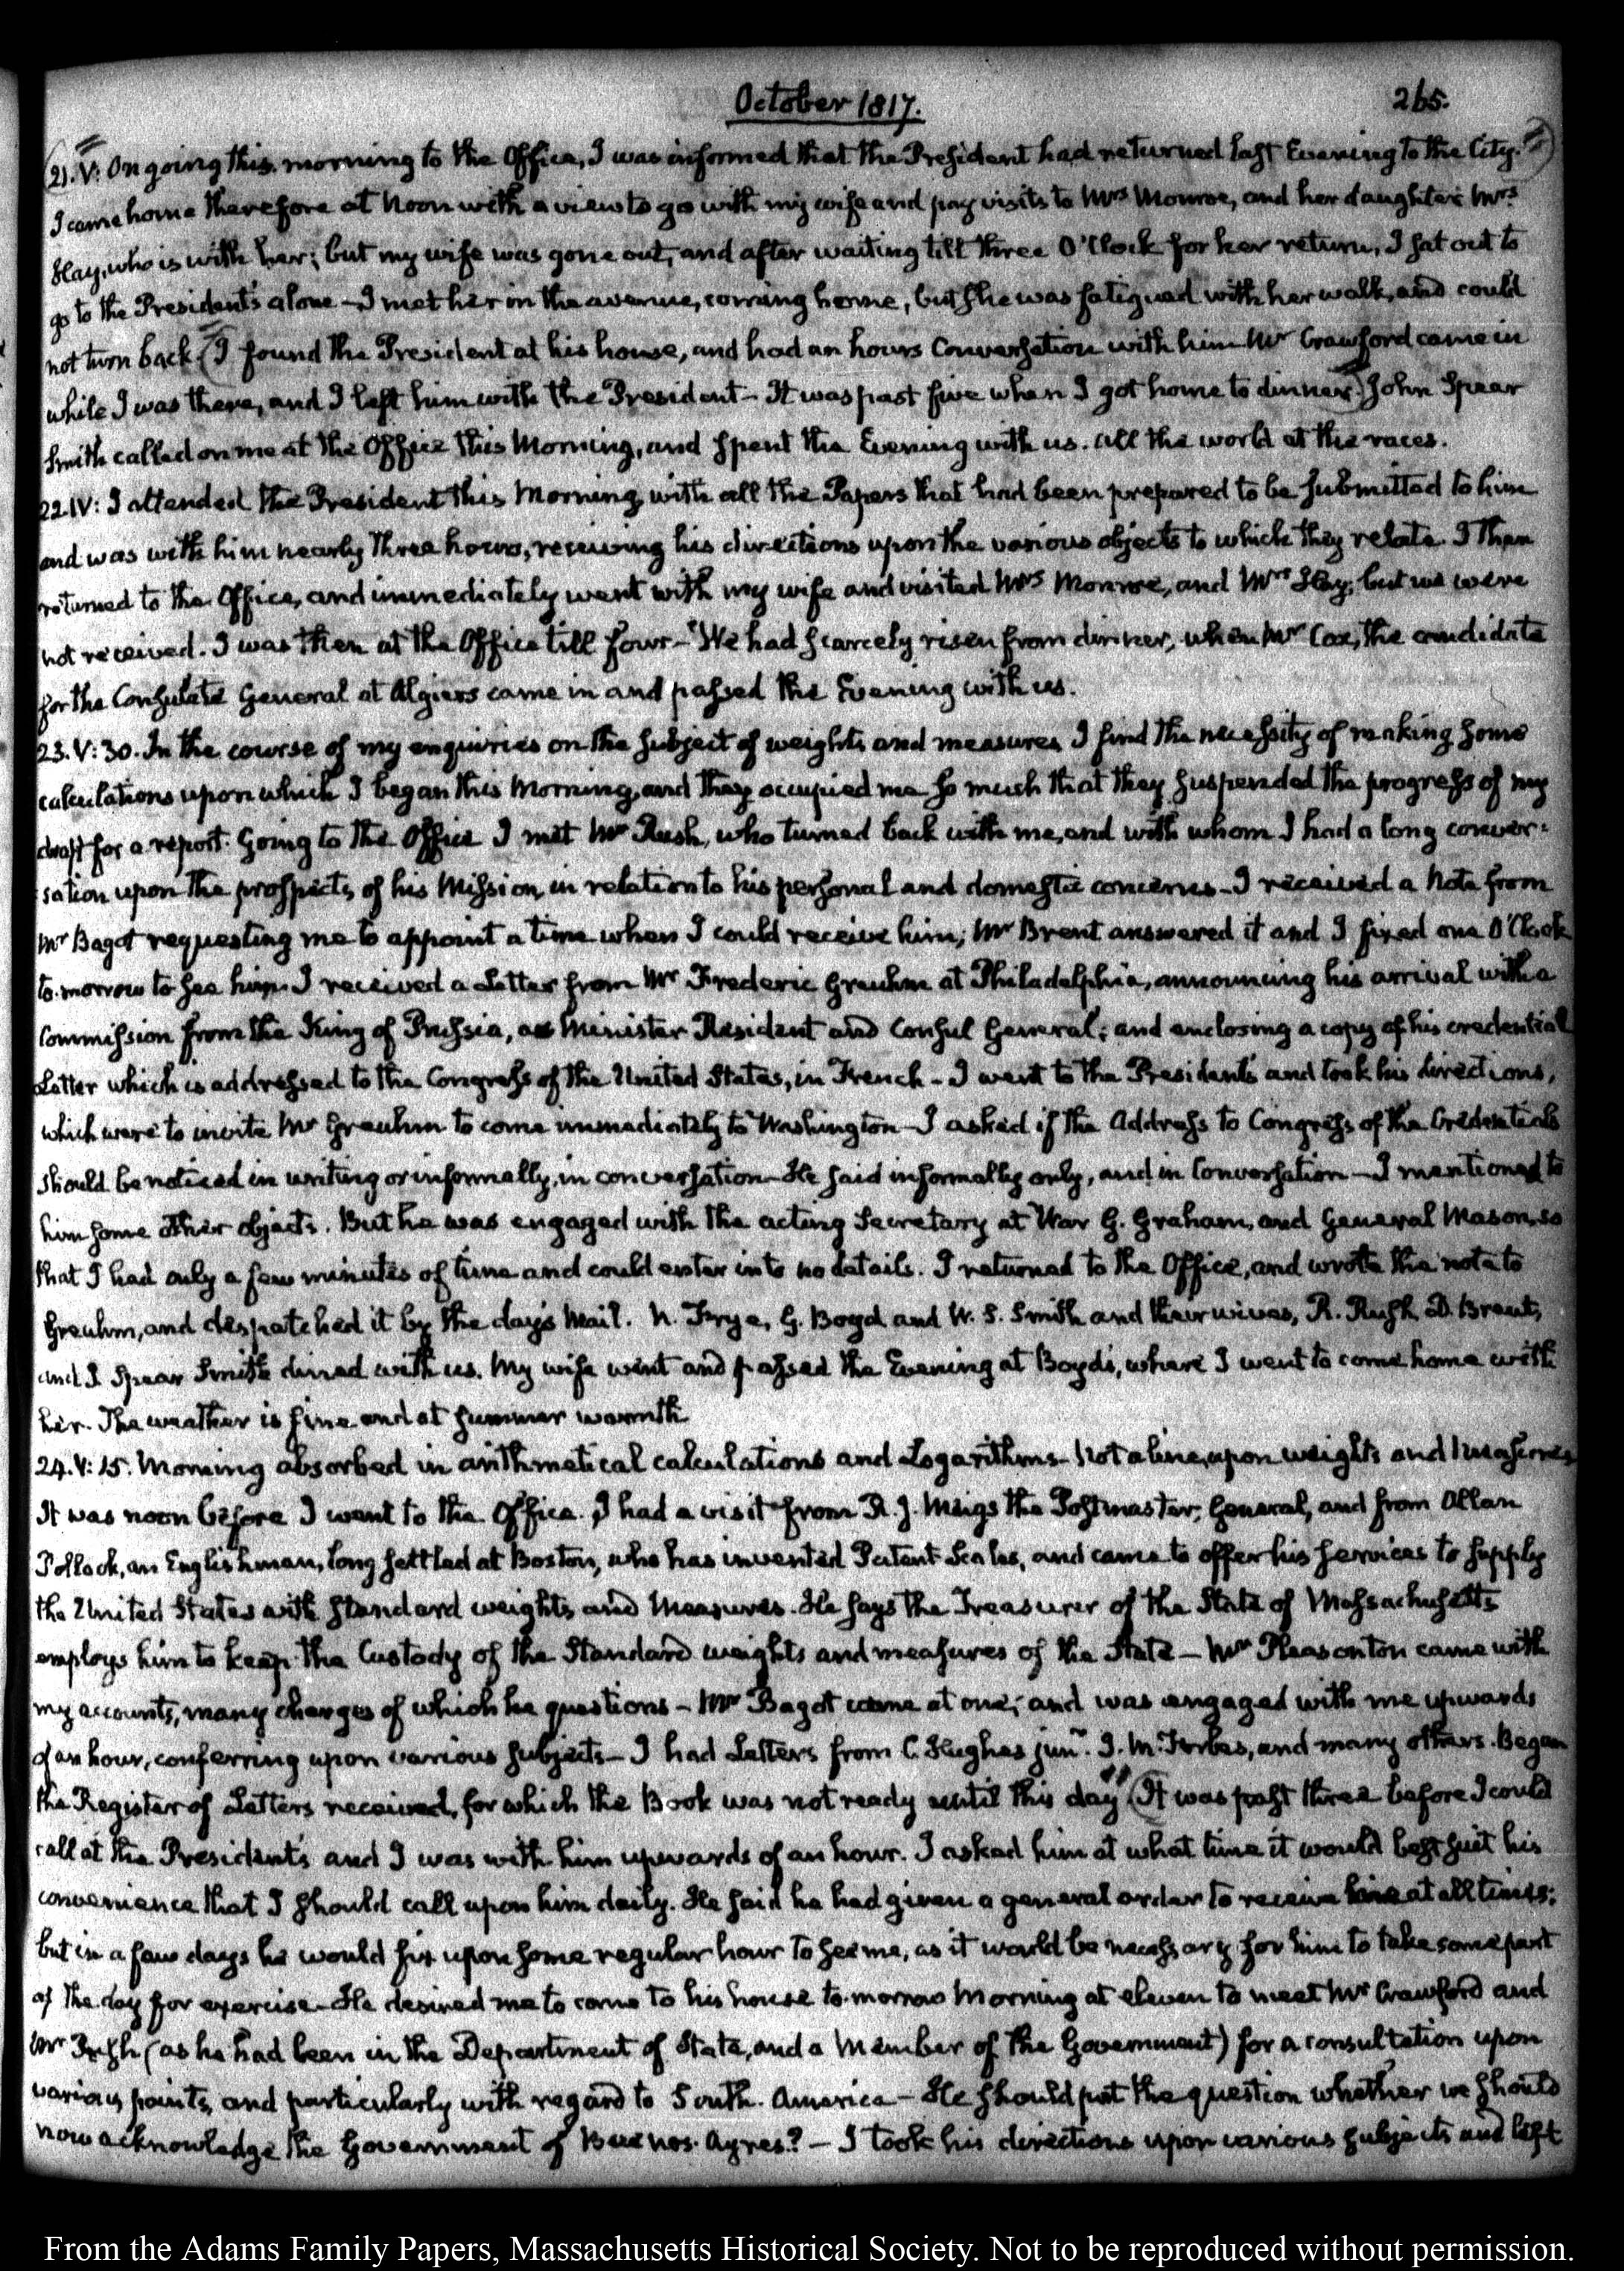 October 1817.
265.
21. V: On going this morning to the Office, I was informed that the President had returned last Evening to the City.
I came home therefore at Noon with a view to go with my wife and pay visits to Mrs Monroe, and her daughter Mrs
Hay, who is with her; but my wife was gone out, and after waiting till three O'Clock for her return, I sat out to
go to the President's alone — I met her in the avenue, coming home, but she was fatigued with her walk, and could
not turn back. (I found the President at his house, and had an hours Conversation with him Mr Crawford came in
while I was there, and I left him with the President — It was past five when I got home to dinner.) John Spear
Smith called on me at the Office this Morning, and spent the Evening with us. all the world at the races.
22. IV: I attended the President this Morning, with all the Papers that had been prepared to be submitted to him
and was with him nearly three hours, receiving his directions upon the various objects to which they relate. I then
returned to the Office, and immediately went with my wife and visited Mrs Monroe, and Mrs Hay; but we were
not received. I was then at the Office till four — We had scarcely risen from dinner, when Mr Cox, the candidate
for the Consulate General at Algiers came in and passed the Evening with us.
23. V: 30. In the course of my enquiries on the subject of weights and measures, I find the necessity of making some
calculations upon which I began this Morning, and they occupied me so much that they suspended the progress of my
draft for a report. Going to the Office I met Mr Rush, who turned back with me, and with whom I had a long conver:
sation upon the prospects of his Mission, in relation to his personal and domestic concerns — I received a Note from
Mr Bagot requesting me to appoint a time when I could receive him; Mr Brent answered it and I fixed one O'Clock
to-morrow to see him. I received a Letter from Mr Frederic Greuhm at Philadelphia, announcing his arrival with a
Commission from the King of Prussia, as Minister Resident and Consul General; and enclosing a copy of his credential
Letter which is addressed to the Congress of the United States, in French — I went to the President's and took his directions,
which were to invite Mr Greuhm to come immediately to Washington — I asked if the Address to Congress of the Credentials
should be noticed in writing or informally, in conversation — He said informally only, and in Conversation — I mentioned to
him some other objects. But he was engaged with the acting Secretary at War G. Graham, and General Mason, so
that I had only a few minutes of time and could enter into no details. I returned to the Office, and wrote the note to
Greuhm, and despatched it by the day's Mail. N. Frye, G. Boyd and W. S. Smith and their wives, R. Rush, D. Brent,
and J. Spear Smith dined with us. My wife went and passed the Evening at Boyd's, where I went to come home with
her. The weather is fine and at summer warmth
24. V: 15. Morning absorbed in arithmetical calculations and Logarithms — Not a line, upon weights and Measures
It was noon before I went to the Office. I had a visit from R. J. Meigs the Postmaster, General, and from Allan
Pollock, an Englishman, long settled at Boston, who has invented Patent Scales, and came to offer his services to supply
the United States with standard weights and Measures. He says the Treasurer of the State of Massachusetts
employs him to keep the Custody of the Standard weights and measures of the State — Mr Pleasonton came with
my accounts, many charges of which he questions — Mr Bagot came at one; and was engaged with me upwards
of an hour, conferring upon various subjects — I had Letters from C. Hughes junr. J. M. Forbes, and many others. Began
the Register of Letters received, for which the Book was not ready until this day (It was past three before I could
call at the President's and I was with him upwards of an hour. I asked him at what time it would best suit his
convenience that I should call upon him daily. He said he had given a general order to receive me at all times;
but in a few days he would fix upon some regular hour to see me, as it would be necessary for him to take some part
of the day for exercise — He desired me to come to his house to-morrow Morning at eleven to meet Mr Crawford and
Mr Rush (as he had been in the Department of State, and a Member of the Government) for a consultation upon
various points, and particularly with regard to South-America — He should put the question whether we should
now acknowledge the Government of Buenos-Ayres? — I took his directions upon various subjects and left
From the Adams Family Papers, Massachusetts Historical Society. Not to be reproduced without permission.